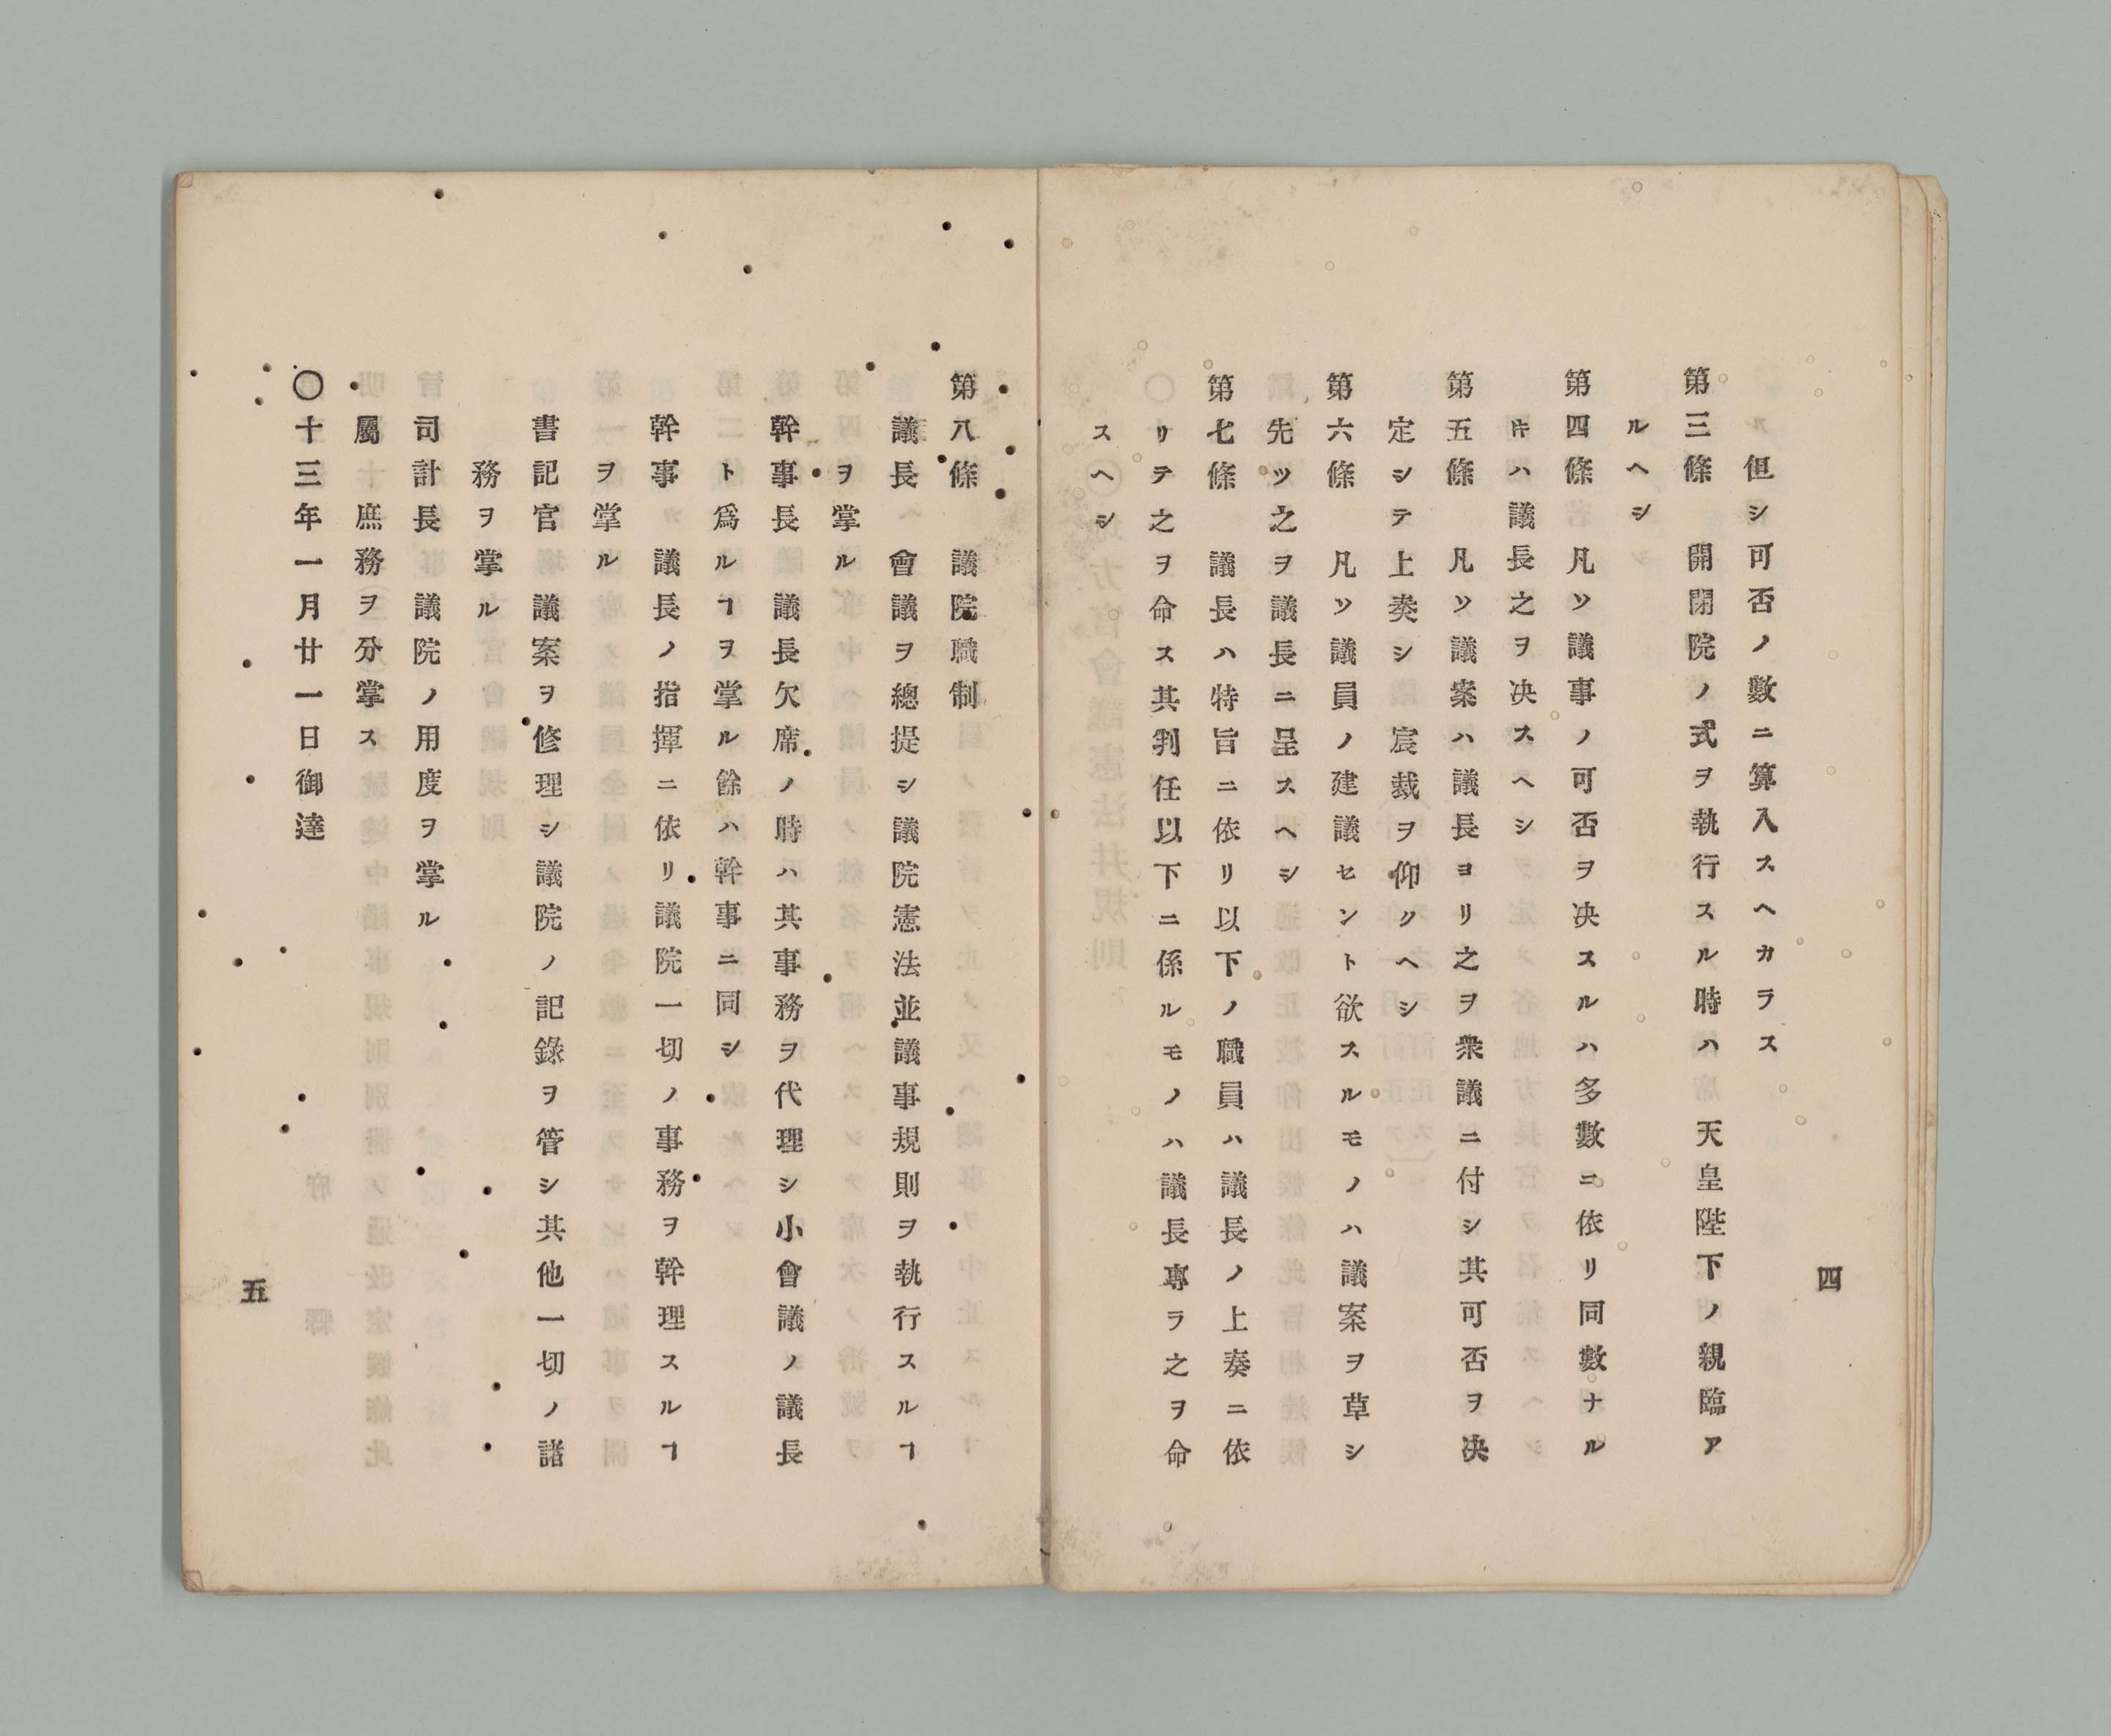 四
但シ可否ノ數ニ算入スヘカラス
第三條　開閉院ノ式ヲ執行スル時ハ　天皇陛下ノ親臨ア
ルヘシ
第四條　凡ソ議事ノ可否ヲ决スルハ多數ニ依リ同數ナル
𪜈ハ議長之ヲ决スヘシ
第五條　凡ソ議案ハ議長ヨリ之ヲ衆議ニ付シ其可否ヲ决
定シテ上奏シ　宸裁ヲ仰クヘシ
第六條　凡ソ議員ノ建議セント欲スルモノハ議案ヲ草シ
先ツ之ヲ議長ニ呈スヘシ
第七條　議長ハ特旨ニ依リ以下ノ職員ハ議長ノ上奏ニ依
リテ之ヲ命ス其判任以下ニ係ルモノハ議長專ラ之ヲ命
スヘシ
第八條　議院職制
議長　會議ヲ總提シ議院憲法並議事規則ヲ執行スルヿ
ヲ掌ル
幹事長　議長欠席ノ時ハ其事務ヲ代理シ小會議ノ議長
ト爲ルヿヲ掌ル餘ハ幹事ニ同シ
幹事　議長ノ指揮ニ依リ議院一切ノ事務ヲ幹理スルヿ
ヲ掌ル
書記官　議案ヲ修理シ議院ノ記錄ヲ管シ其他一切ノ諸
務ヲ掌ル
司計長　議院ノ用度ヲ掌ル
屬　庶務ヲ分掌ス
〇十三年一月廿一日御達
五